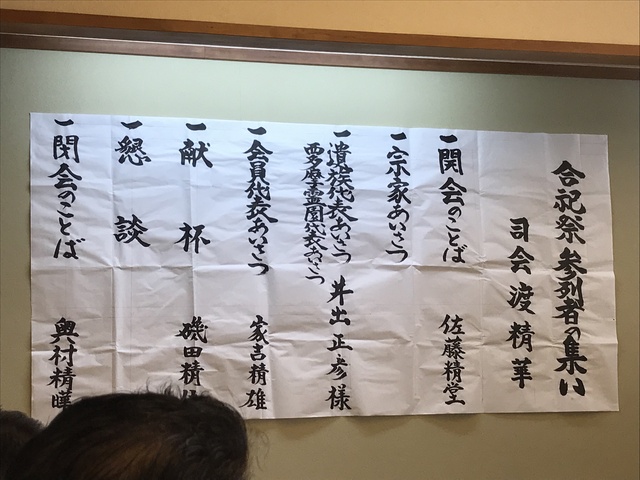 合祀祭参列者の集い
司会 渡 精華
一 開会のことば 佐藤精堂
一 宗家あいさつ
一 遺族代表あいさつ 井出正彦様
西多摩霊園代表あいさつ
一 会員代表あいさつ 家吉精雄
一 献杯 磯田精
一 懇談
一 閉会のことば 奥村精曄